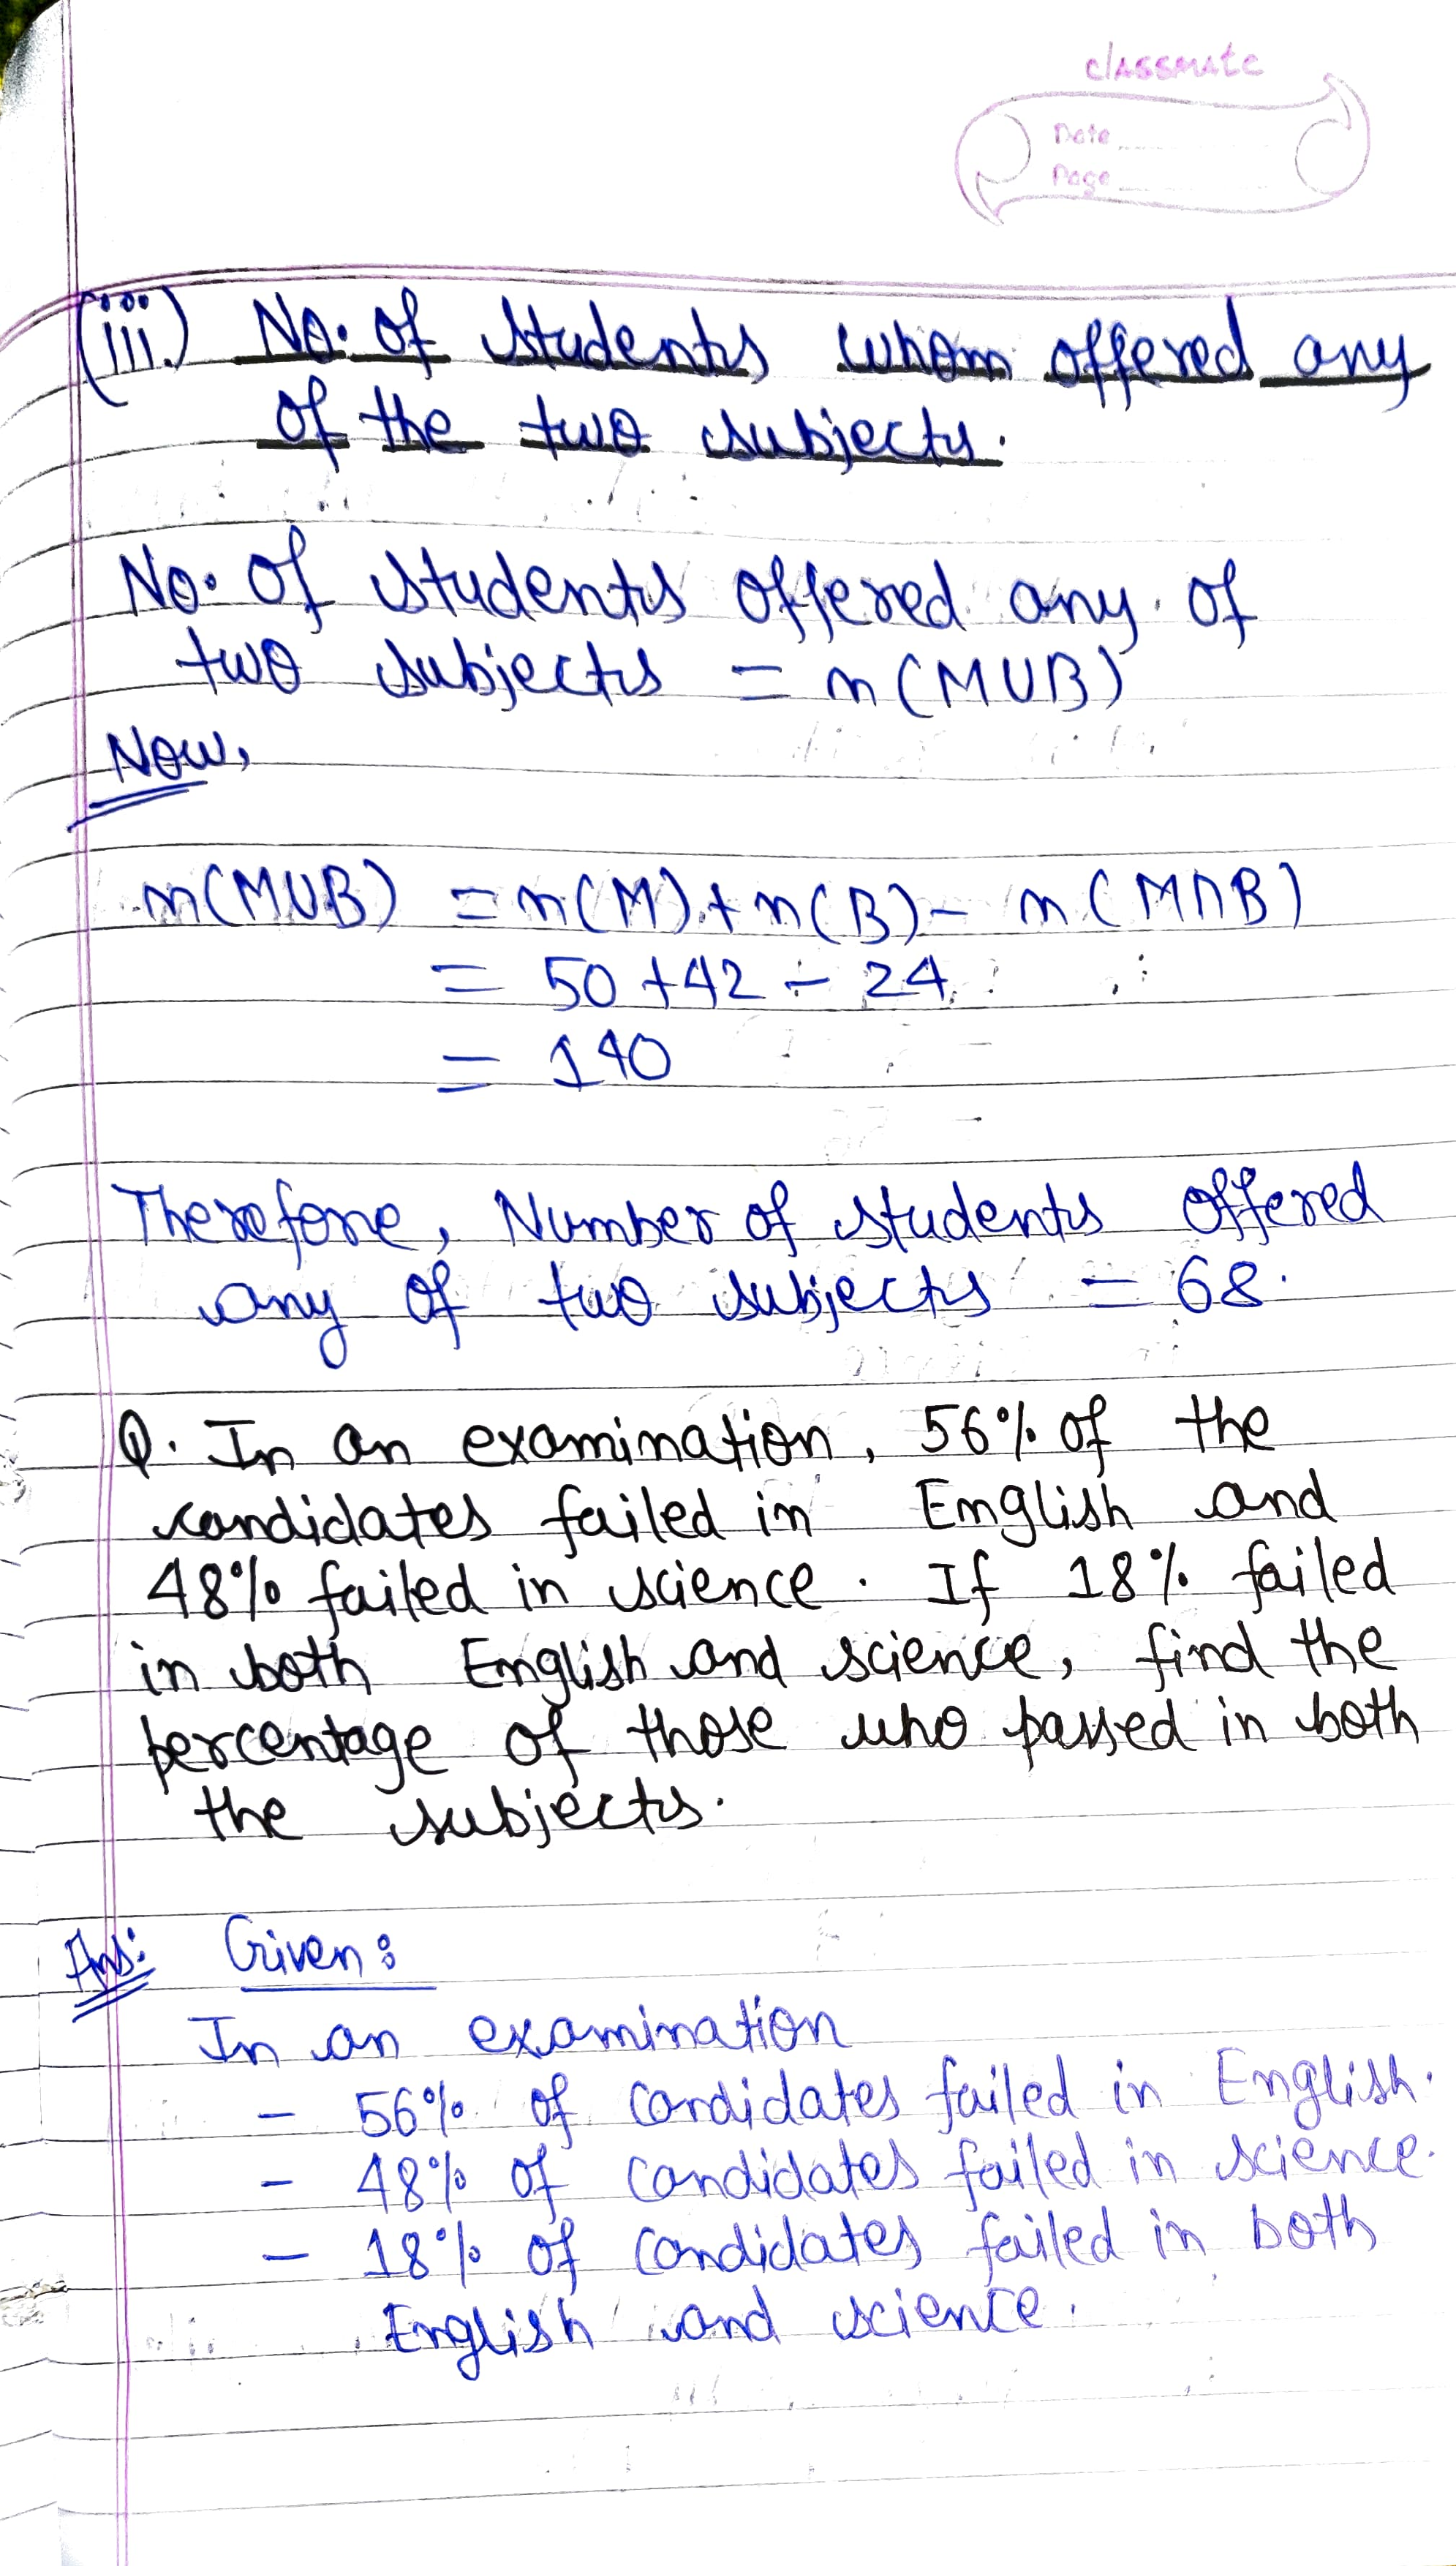 classmate
Date
Page
(iii.) No. of students whom offered any
of the two subjects.
No. of students offered any of
two subjects = n(MUB)
Now,
n(MUB) = n(M) + n(B) - n(M∩B)
= 50 + 42 - 24
= 140
Therefore, Number of students offered
any of two subjects = 68.
Q. In an examination, 56% of the
candidates failed in English and
48% failed in science. If 18% failed
in both English and science, find the
percentage of those who passed in both
the subjects.
Ans: Given:
In an examination
- 56% of candidates failed in English.
- 48% of candidates failed in science.
- 18% of candidates failed in both
English and science.